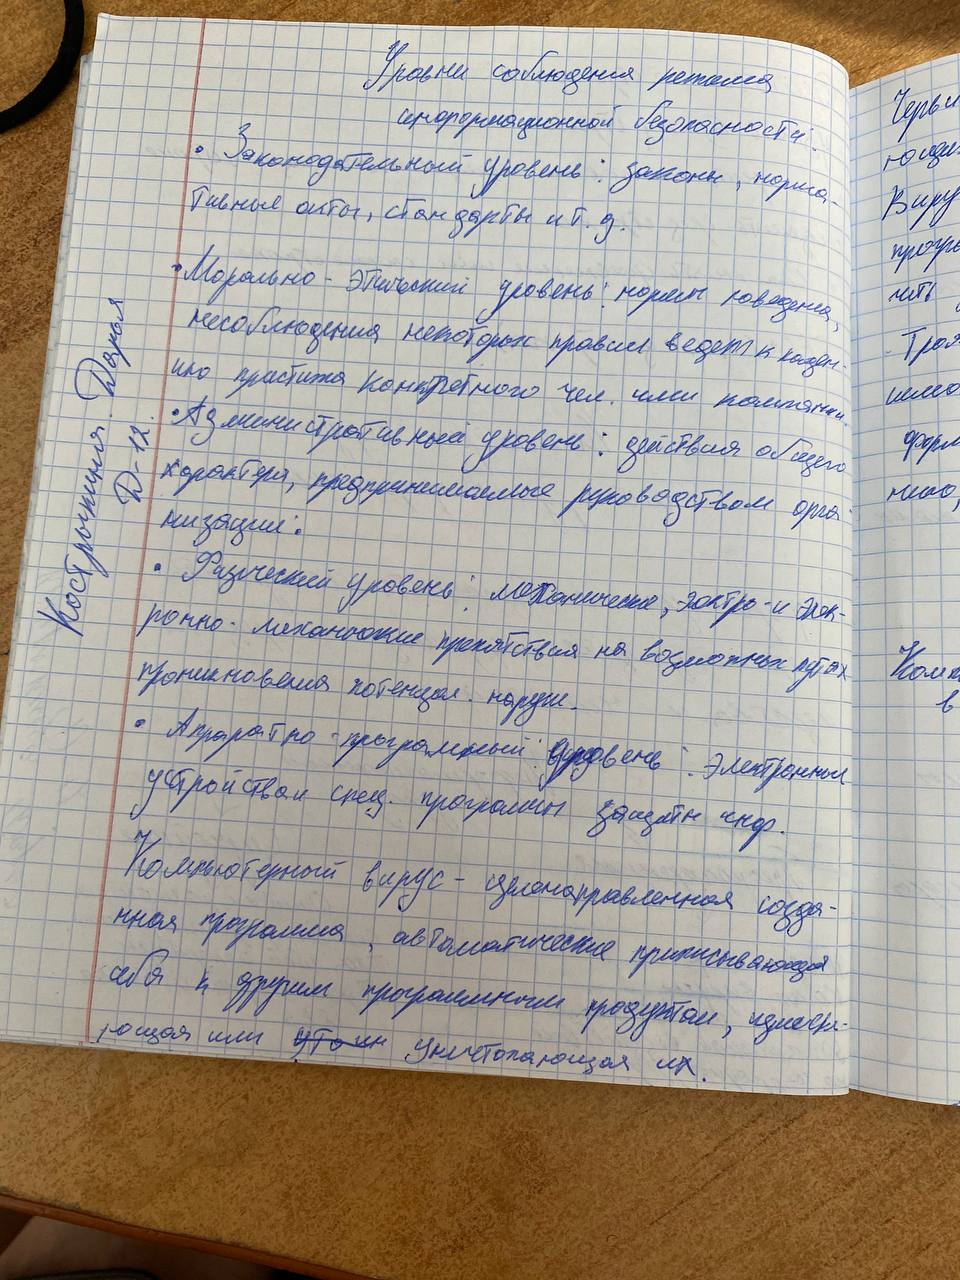 Уровни соблюдения режима
информационной безопасности:
• Законодательный уровень: законы, норма-
тивные акты, стандарты и т. д.
• Морально - этический уровень: нормы поведения,
несоблюдения некоторых правил ведет к паден-
ию прастижа конкретного чел. или компании.
• Административный уровень: действия общего
характера, предпринимаемые руководством орга-
низации:
• Физический уровень: механические, эоктро- и элек-
ронно-механические препятствия на возможных путях
проникновения потенциал. наруш.
• Аппаратно - програмный: уровень: электронные
устройствам спец. программы защиты инф.
Компьютерный вирус - целенаправленная созда-
нная программа, автоматические приписывающая
себя к другим программным продуктам, изменя-
ющая или уничтожающая их.
Кострыкина Дарья
Д-12.
Черви
ющи
Виру
прогр
нить
- Троя
форм
Комп
в